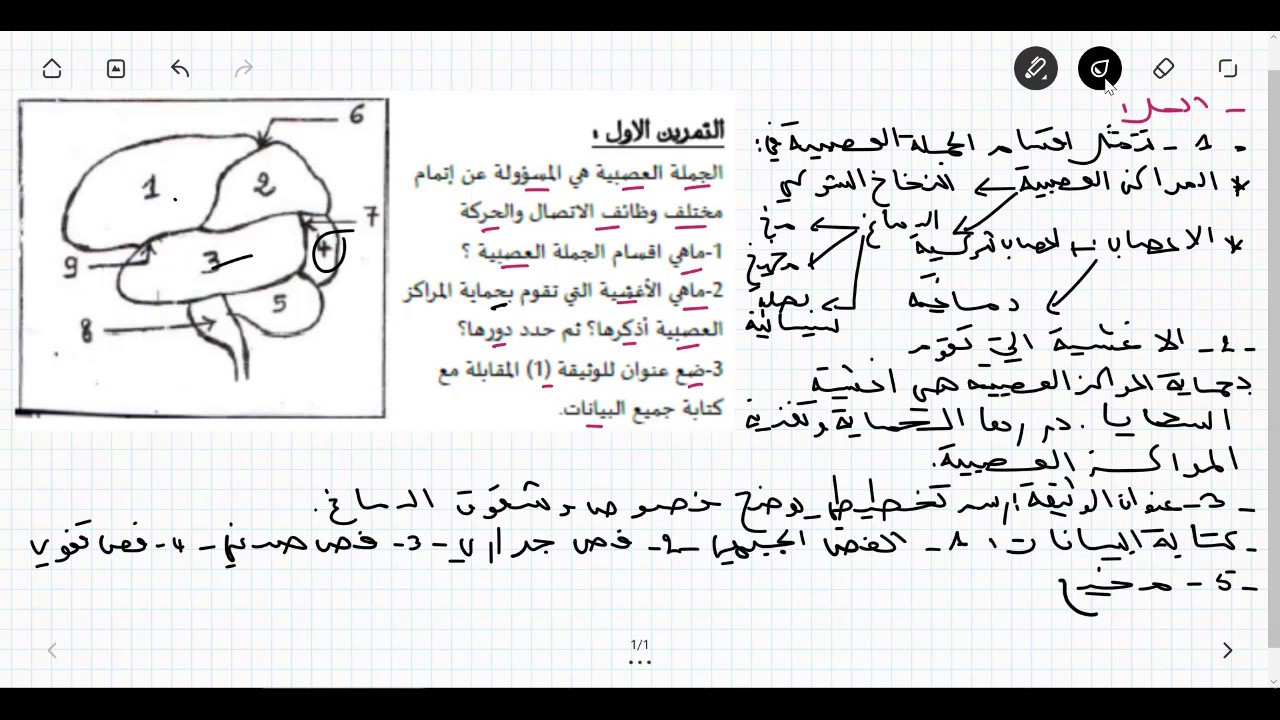 التمرين الاول :
الجملة العصبية هي المسؤولة عن إتمام
مختلف وظائف الاتصال والحركة
1-ماهي اقسام الجملة العصبية ؟
2-ماهي الأغشية التي تقوم بحماية المراكز
العصبية أذكرها؟ ثم حدد دورها؟
3-ضع عنوان للوثيقة (1) المقابلة مع
كتابة جميع البيانات.
6
1
2
7
3
4
9
5
8
- الحل:
1 - تتمثل اقسام الجملة العصبية في:
* المراكز العصبية ← النخاع الشوكي
الدماغ ← مخ
مخيخ
بصلة
سيسائية
* الاعصاب ← اعصاب شوكية
دماغية
- 2 - الاغشية التي تقوم
بحماية المراكز العصبية هي اغشية
السحايا . دورها الحماية وتغذية
المراكز العصبية.
- 3 - عنوان الوثيقة: رسم تخطيطي يوضح فصوص و شقوق الدماغ.
- كتابة البيانات: 1 - الفص الجبهي - 2 - فص جداري - 3 - فص صدغي - 4 - فص قفوي
- 5 - مخيخ
1/1